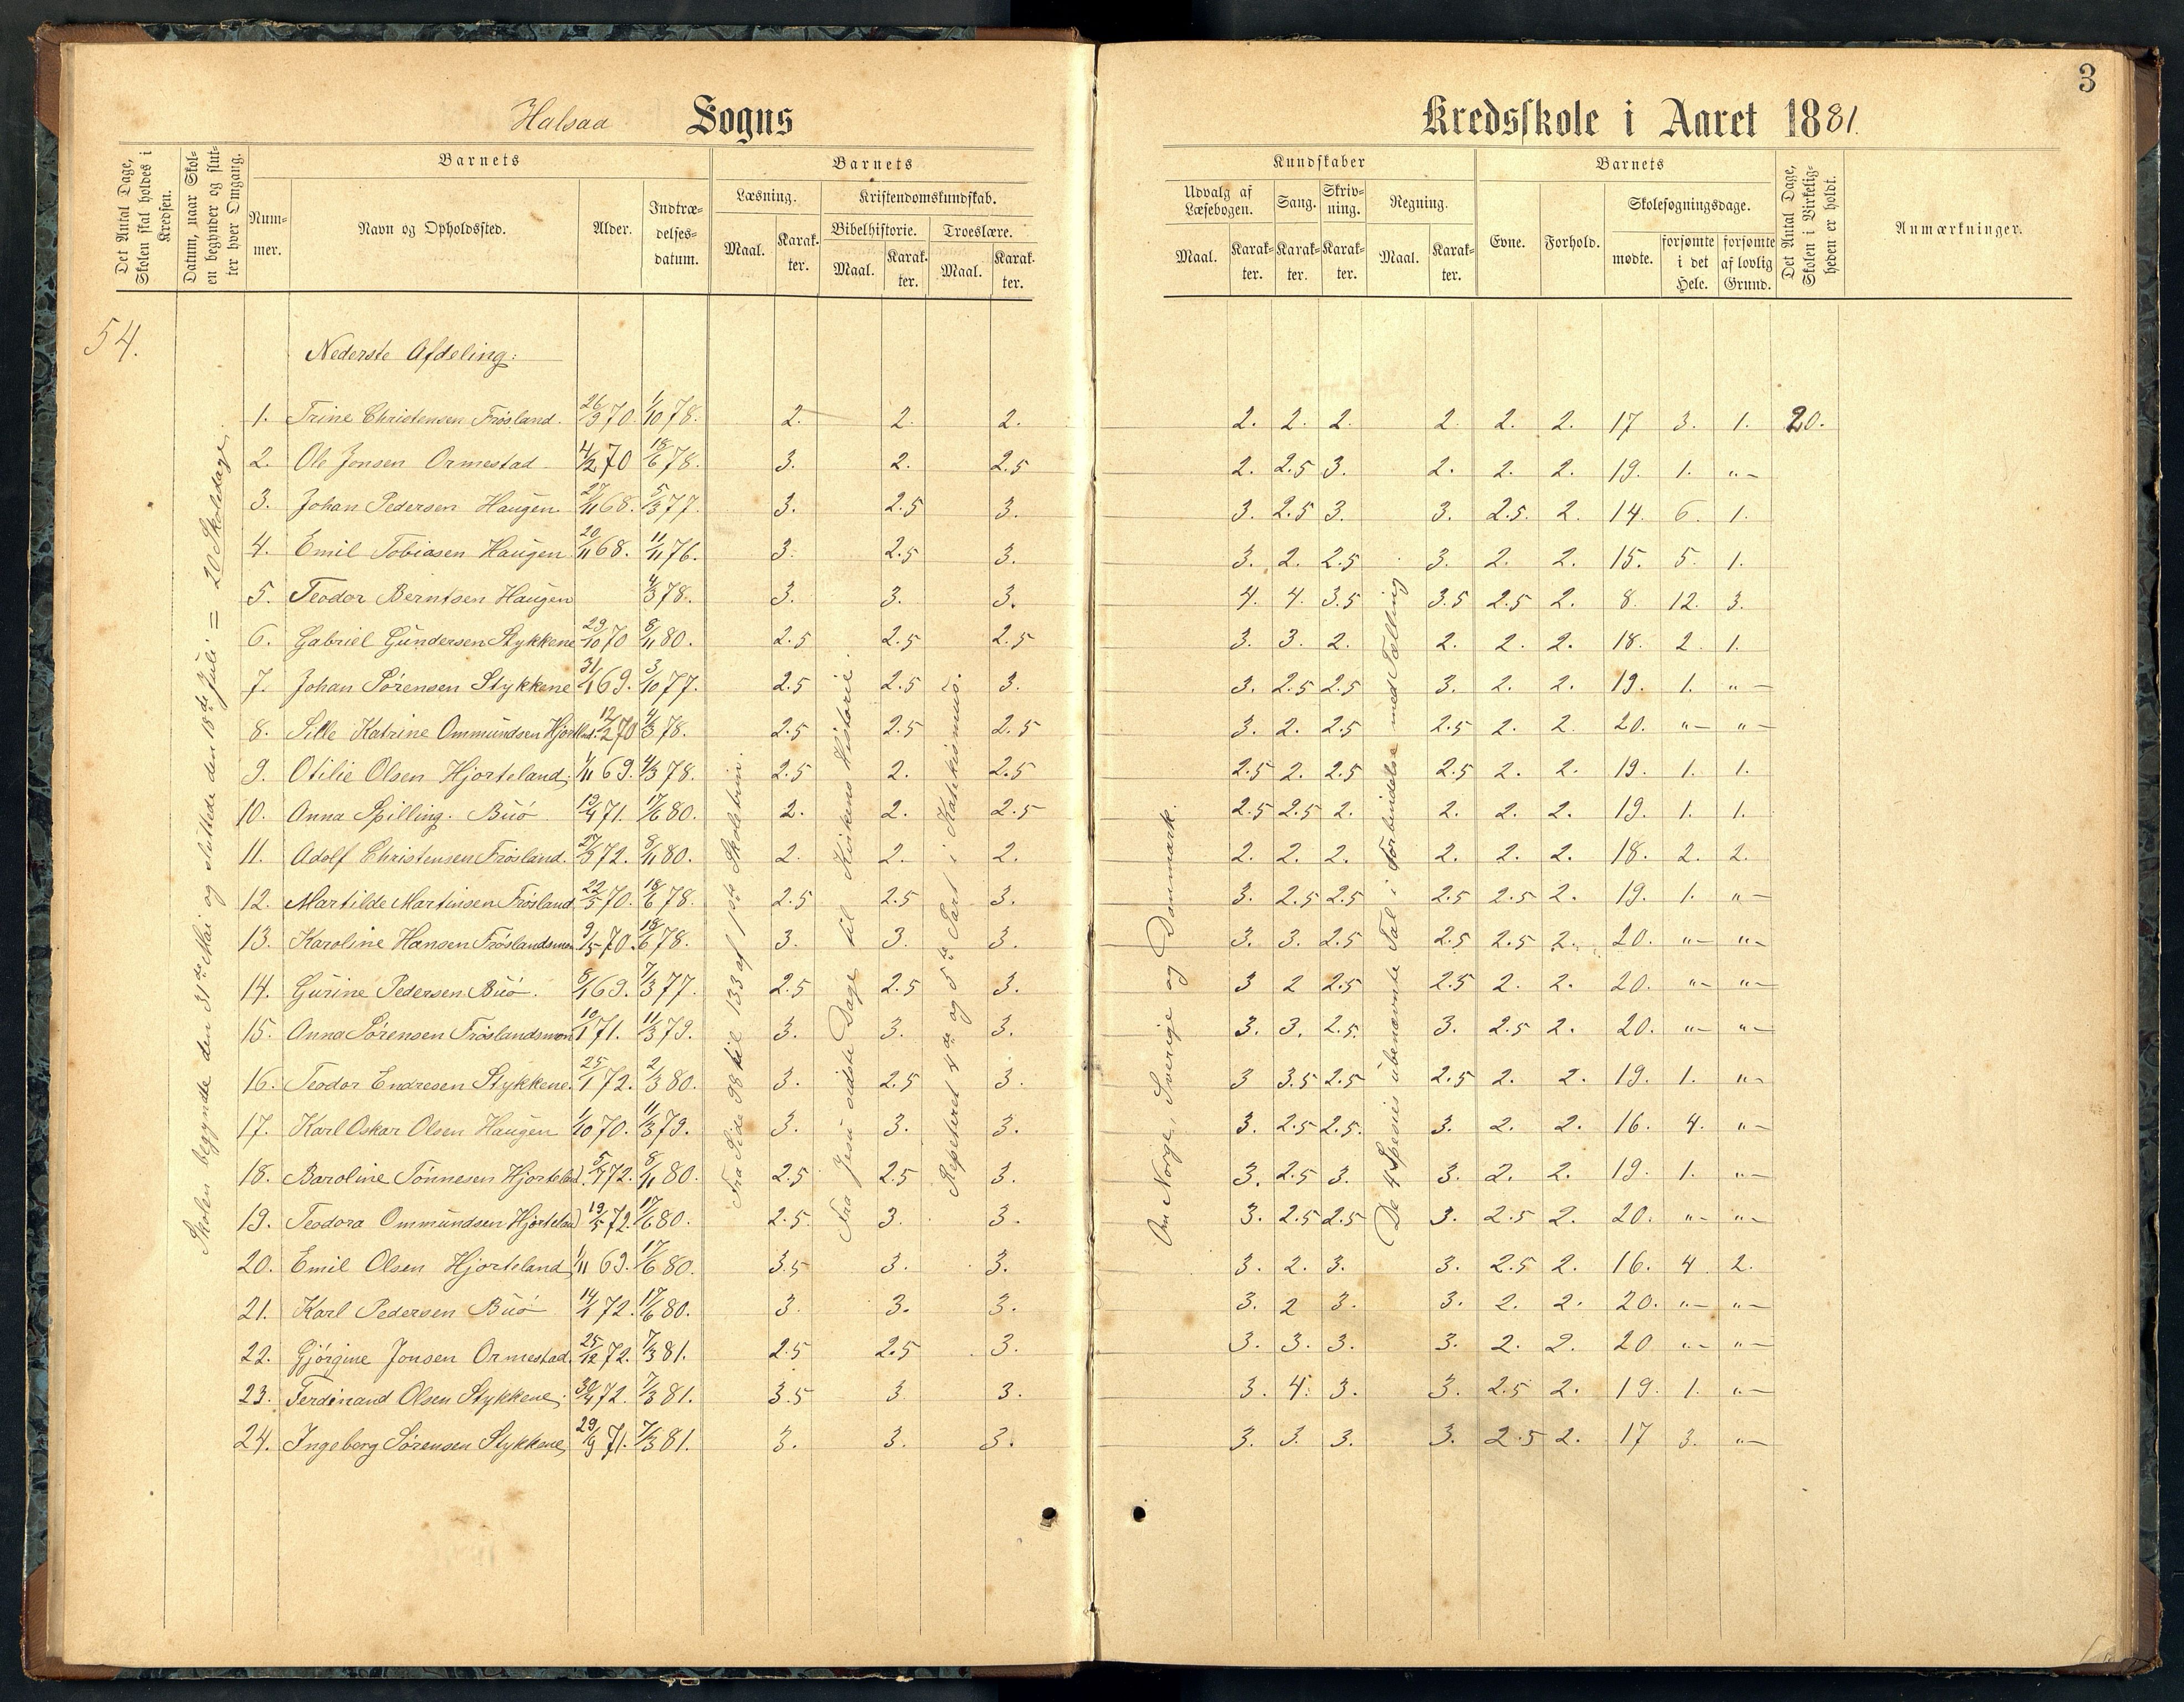 3
Halsaa Sogns Kredsskole i Aaret 1881.
Det Antal Dage, Skolen skal holdes i Kredsen.
Datum, naar Skolen begynder og slutter hver Omgang.
Barnets
Nummer.
Navn og Opholdssted.
Alder.
Indtrædelsesdatum.
Barnets
Læsning.
Maal. Karakter.
Kristendomskundskab.
Bibelhistorie.
Maal. Karakter.
Troeslære.
Maal. Karakter.
Kundskaber
Udvalg af Læsebogen.
Maal. Karakter.
Sang.
Karakter.
Skrivning.
Karakter.
Regning.
Maal. Karakter.
Barnets
Evne. Forhold.
Skolesøgningsdage.
mødte. forsømte i det Hele. forsømte af lovlig Grund.
Det Antal Dage, Skolen i Virkeligheden er holdt.
Anmærkninger.
54.
Nederste Afdeling:
Skolen begyndte den 31te Mai og sluttede den 18de Juli = 20 Skoledage.
Fra Side 98 til 133 af 1ste Skoletrin.
Fra Jesu sidste Dage til Kirkens Historie.
Repeteret 4de og 5te Part i Katekismus.
Om Norge, Sverige og Danmark.
De 4 Spesies i ubenævnte Tal i Forbindelse med Tælling
1. Trine Christensen Frösland. 26/3 70. 1/10 78. 2. 2. 2. 2. 2. 2. 2. 2. 2. 17 3. 1. 20.
2. Ole Jonsen Ormestad 4/12 70 18/6 78. 3. 2. 2.5 2. 2.5 3. 2. 2. 2. 19. 1. "-
3. Johan Pedersen Haugen. 27/11 68. 5/3 77. 3. 2.5 3. 3. 2.5 3. 3. 2.5. 2. 14. 6. 1.
4. Emil Tobiasen Haugen 20/11 68. 11/11 76. 3. 2.5 3. 3. 2. 2.5 3. 2. 2. 15. 5. 1.
5. Teodor Berntsen Haugen 4/3 78. 3. 3. 3. 4. 4. 3.5 3.5 2.5 2. 8. 12. 3.
6. Gabriel Gundersen Stykkene 29/10 70 8/11 80. 2.5 2.5 2.5 3. 3. 2. 2. 2. 2. 18. 2. 1.
7. Johan Sörensen Stykkene 31/1 69. 3/10 77. 2.5 2.5 3. 3. 2.5 2.5 3. 2. 2. 19. 1. "-
8. Sille Katrine Ommundsen Hjortland. 12/2 70 4/3 78. 2.5 2.5 2.5 3. 2. 2.5 2.5 2. 2. 20. "- "-
9. Otilie Olsen Hjorteland. 1/11 69. 4/3 78. 2.5 2. 2.5 2.5 2. 2.5 2.5 2. 2. 19. 1. 1.
10. Anna Spilling. Buö. 19/4 71. 17/6 80. 2. 2. 2.5 2.5 2.5 2. 2. 2. 2. 19. 1. 1.
11. Adolf Christensen Frösland. 27/3 72. 8/11 80. 2. 2. 2. 2. 2. 2. 2. 2. 2. 18. 2. 2.
12. Martilde Martinsen Frösland 22/5 70. 18/6 78. 2.5 2.5 3. 3. 2.5 2.5 2.5 2.5 2. 19. 1. "-
13. Karoline Hansen Fröslandsmon 9/5 70. 18/6 78. 3. 3. 3. 3. 3. 2.5 2.5 2.5 2. 20. "- "-
14. Gurine Pedersen Buö. 8/1 69. 7/3 77. 2.5 2.5 3. 3 2 2.5 2.5 2. 2. 20. "- "-
15. Anna Sörensen Fröslandsmon 10/1 71. 11/3 79. 3. 3. 3. 3. 3. 2.5. 3. 2.5 2. 20. "- "-
16. Teodor Endresen Stykkene. 25/1 72. 2/3 80. 3. 2.5 3. 3 3.5 2.5 2.5 2. 2. 19. 1. "-
17. Karl Oskar Olsen Haugen 1/10 70. 11/3 79. 3. 3. 3. 3. 2.5 2.5. 3. 2. 2. 16. 4. "-
18. Baroline Tönnesen Hjorteland. 5/4 72. 8/11 80. 2.5 2.5 3. 3. 2.5 3. 3. 2. 2. 19. 1. "-
19. Teodora Ommundsen Hjorteland 19/5 72. 17/6 80. 2.5. 3. 3. 3. 2.5 2.5 3. 2.5 2. 20. "- "-
20. Emil Olsen Hjorteland 1/11 69. 17/6 80. 3.5 3. 3. 3. 2. 3. 3. 2.5 2. 16. 4. 2.
21. Karl Pedersen Buö 14/1 72. 17/6 80. 3. 3. 3. 3. 2 3. 3. 2. 2. 20. "- "-
22. Gjörgine Jonsen Ormestad. 25/12 72. 7/3 81. 2.5 2.5 3. 3. 3. 3. 3. 2. 2. 20 "- "-
23. Ferdinand Olsen Stykkene. 30/4 72. 7/3 81. 3.5 3 3. 3. 4. 3. 3. 2.5 2. 19. 1. "-
24. Ingeborg Sörensen Stykkene 29/9 71. 7/3 81. 3. 3. 3. 3. 3. 3. 3. 2.5 2. 17 3. "-